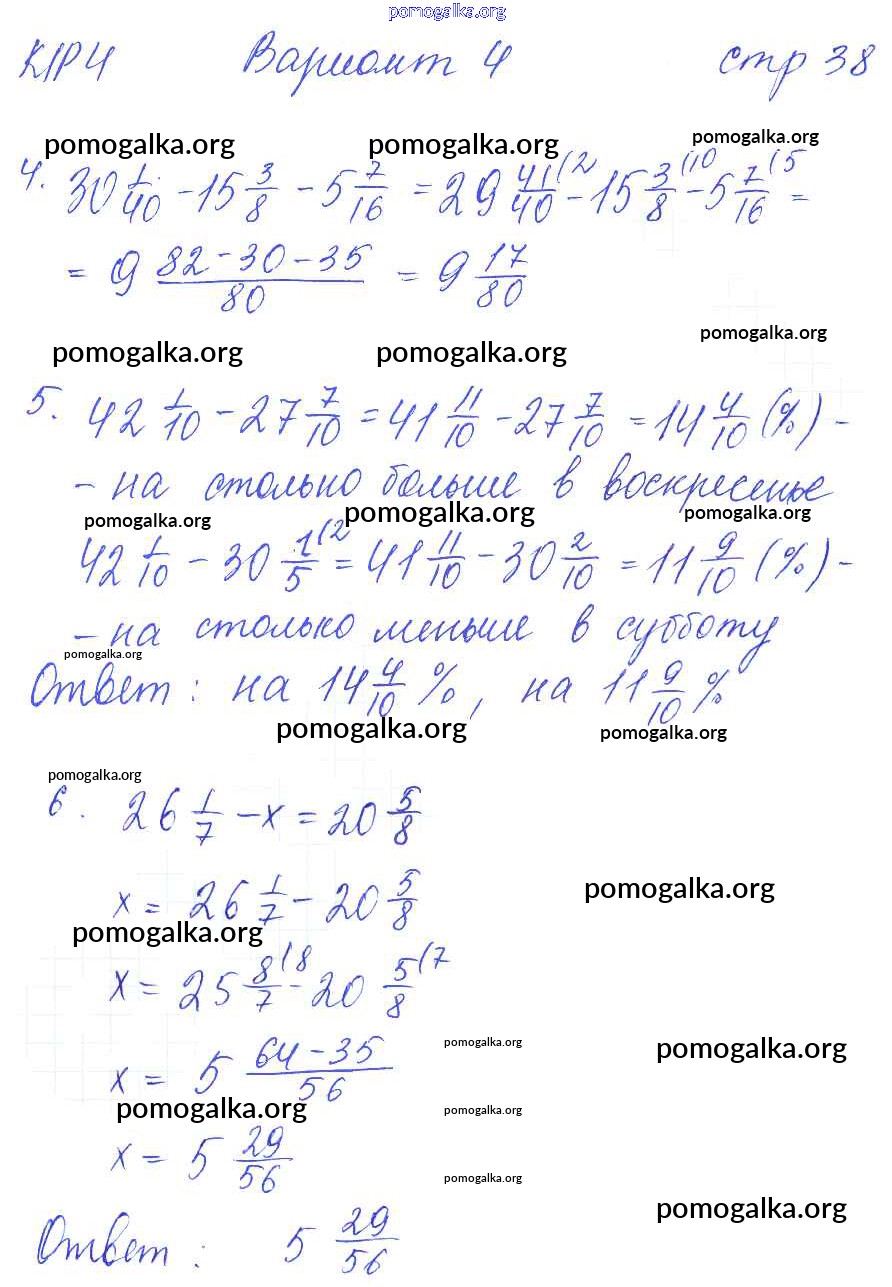 pomogalka.org
К/Р 4 Вариант 4 стр 38
pomogalka.org pomogalka.org pomogalka.org
4. 30 1/40 - 15 3/8 - 5 7/16 = 29 41/40 (2 - 15 3/8 (10 - 5 7/16 (5 =
= 9 (82 - 30 - 35)/80 = 9 17/80
pomogalka.org pomogalka.org pomogalka.org
5. 42 1/10 - 27 7/10 = 41 11/10 - 27 7/10 = 14 4/10 (%) -
- на столько больше в воскресенье
pomogalka.org pomogalka.org pomogalka.org
42 1/10 - 30 1/5 (2 = 41 11/10 - 30 2/10 = 11 9/10 (%) -
- на столько меньше в субботу
pomogalka.org
Ответ: на 14 4/10 %, на 11 9/10 %
pomogalka.org pomogalka.org
pomogalka.org
6. 26 1/7 - x = 20 5/8
x = 26 1/7 - 20 5/8
pomogalka.org pomogalka.org
x = 25 8/7 (8 - 20 5/8 (7
pomogalka.org pomogalka.org
x = 5 (64 - 35)/56
pomogalka.org pomogalka.org
x = 5 29/56
pomogalka.org pomogalka.org
Ответ: 5 29/56